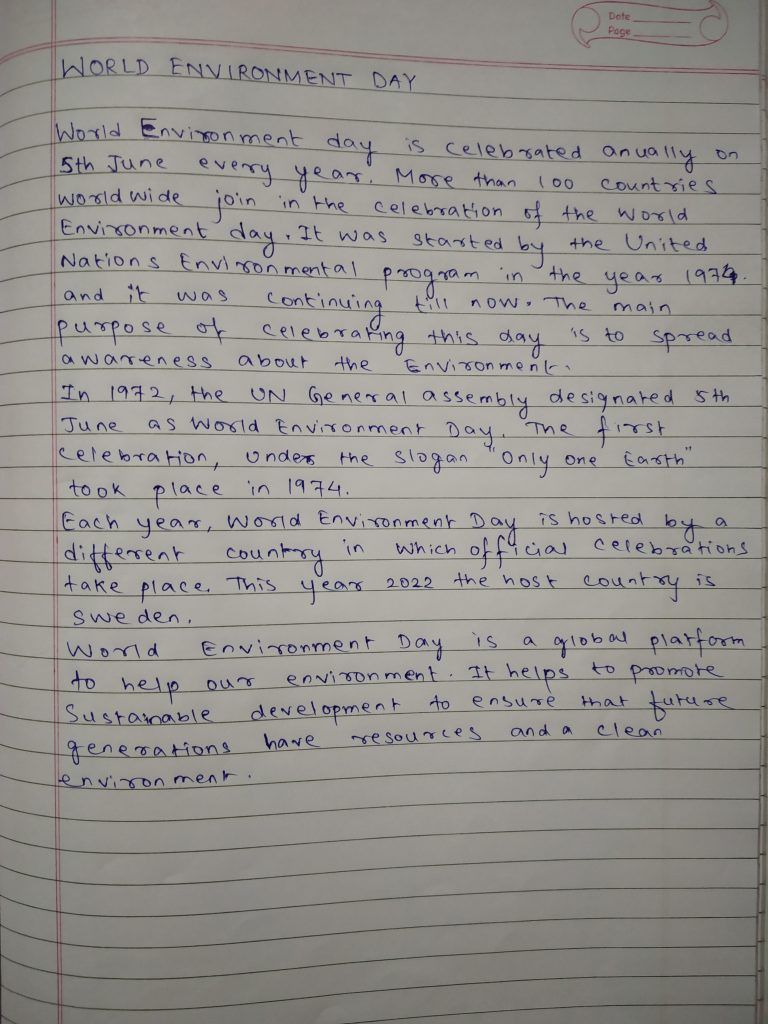 Date
Page
WORLD ENVIRONMENT DAY
World Environment day is celebrated anually on
5th June every year. More than 100 countries
world wide join in the celebration of the world
Environment day. It was started by the United
Nations Environmental program in the year 1974.
and it was continuing till now. The main
purpose of celebrating this day is to spread
awareness about the Environment.
In 1972, the UN General assembly designated 5th
June as World Environment Day. The first
celebration, under the slogan "Only one Earth"
took place in 1974.
Each year, World Environment Day is hosted by a
different country in which official celebrations
take place. This year 2022 the host country is
sweden.
World Environment Day is a global platform
to help our environment. It helps to promote
Sustainable development to ensure that future
generations have resources and a clean
environment.